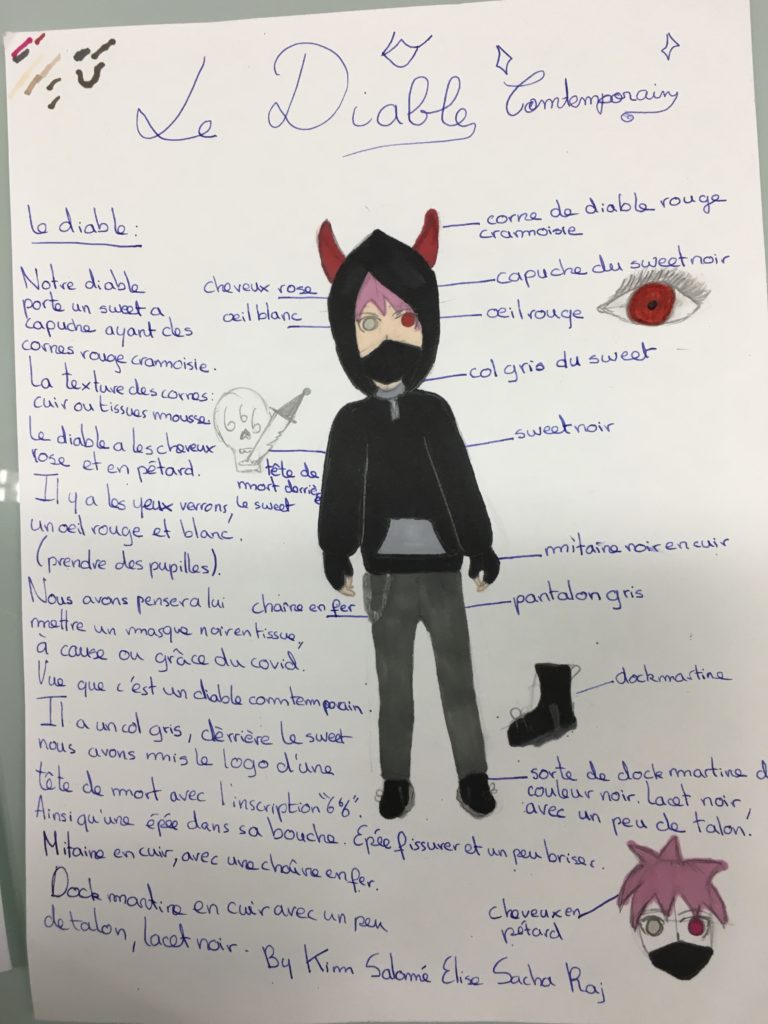 Le Diable Comtemporain
le diable:
Notre diable
porte un sweet a
capuche ayant des
cornes rouge cramoisie.
La texture des cornes:
cuir ou tissues mousse
Le diable a les cheveux
rose et en pétard.
Il y a les yeux verrons,
un oeil rouge et blanc.
(prendre des pupilles).
Nous avons penser a lui
mettre un masque noir en tissue,
à cause ou grâce du covid.
Vue que c'est un diable comtemporain.
Il a un col gris, dèrrière le sweet
nous avons mis le logo d'une
tête de mort avec l'inscription "666".
Ainsi qu'une épée dans sa bouche. Epée fissurer et un peu briser.
Mitaine en cuir, avec une chaîne en fer.
Dock martine en cuir avec un peu
de talon, lacet noir.
By Kim Salomé Elise Sacha Raj
corne de diable rouge
cramoisie
capuche du sweet noir
cheveux rose
oeil blanc
oeil rouge
col gris du sweet
sweet noir
666
tête de
mort derrière
le sweet
mitaine noir en cuir
chaine en fer
pantalon gris
dockmartine
sorte de dock martine d
couleur noir. lacet noir
avec un peu de talon!
cheveux en
pétard